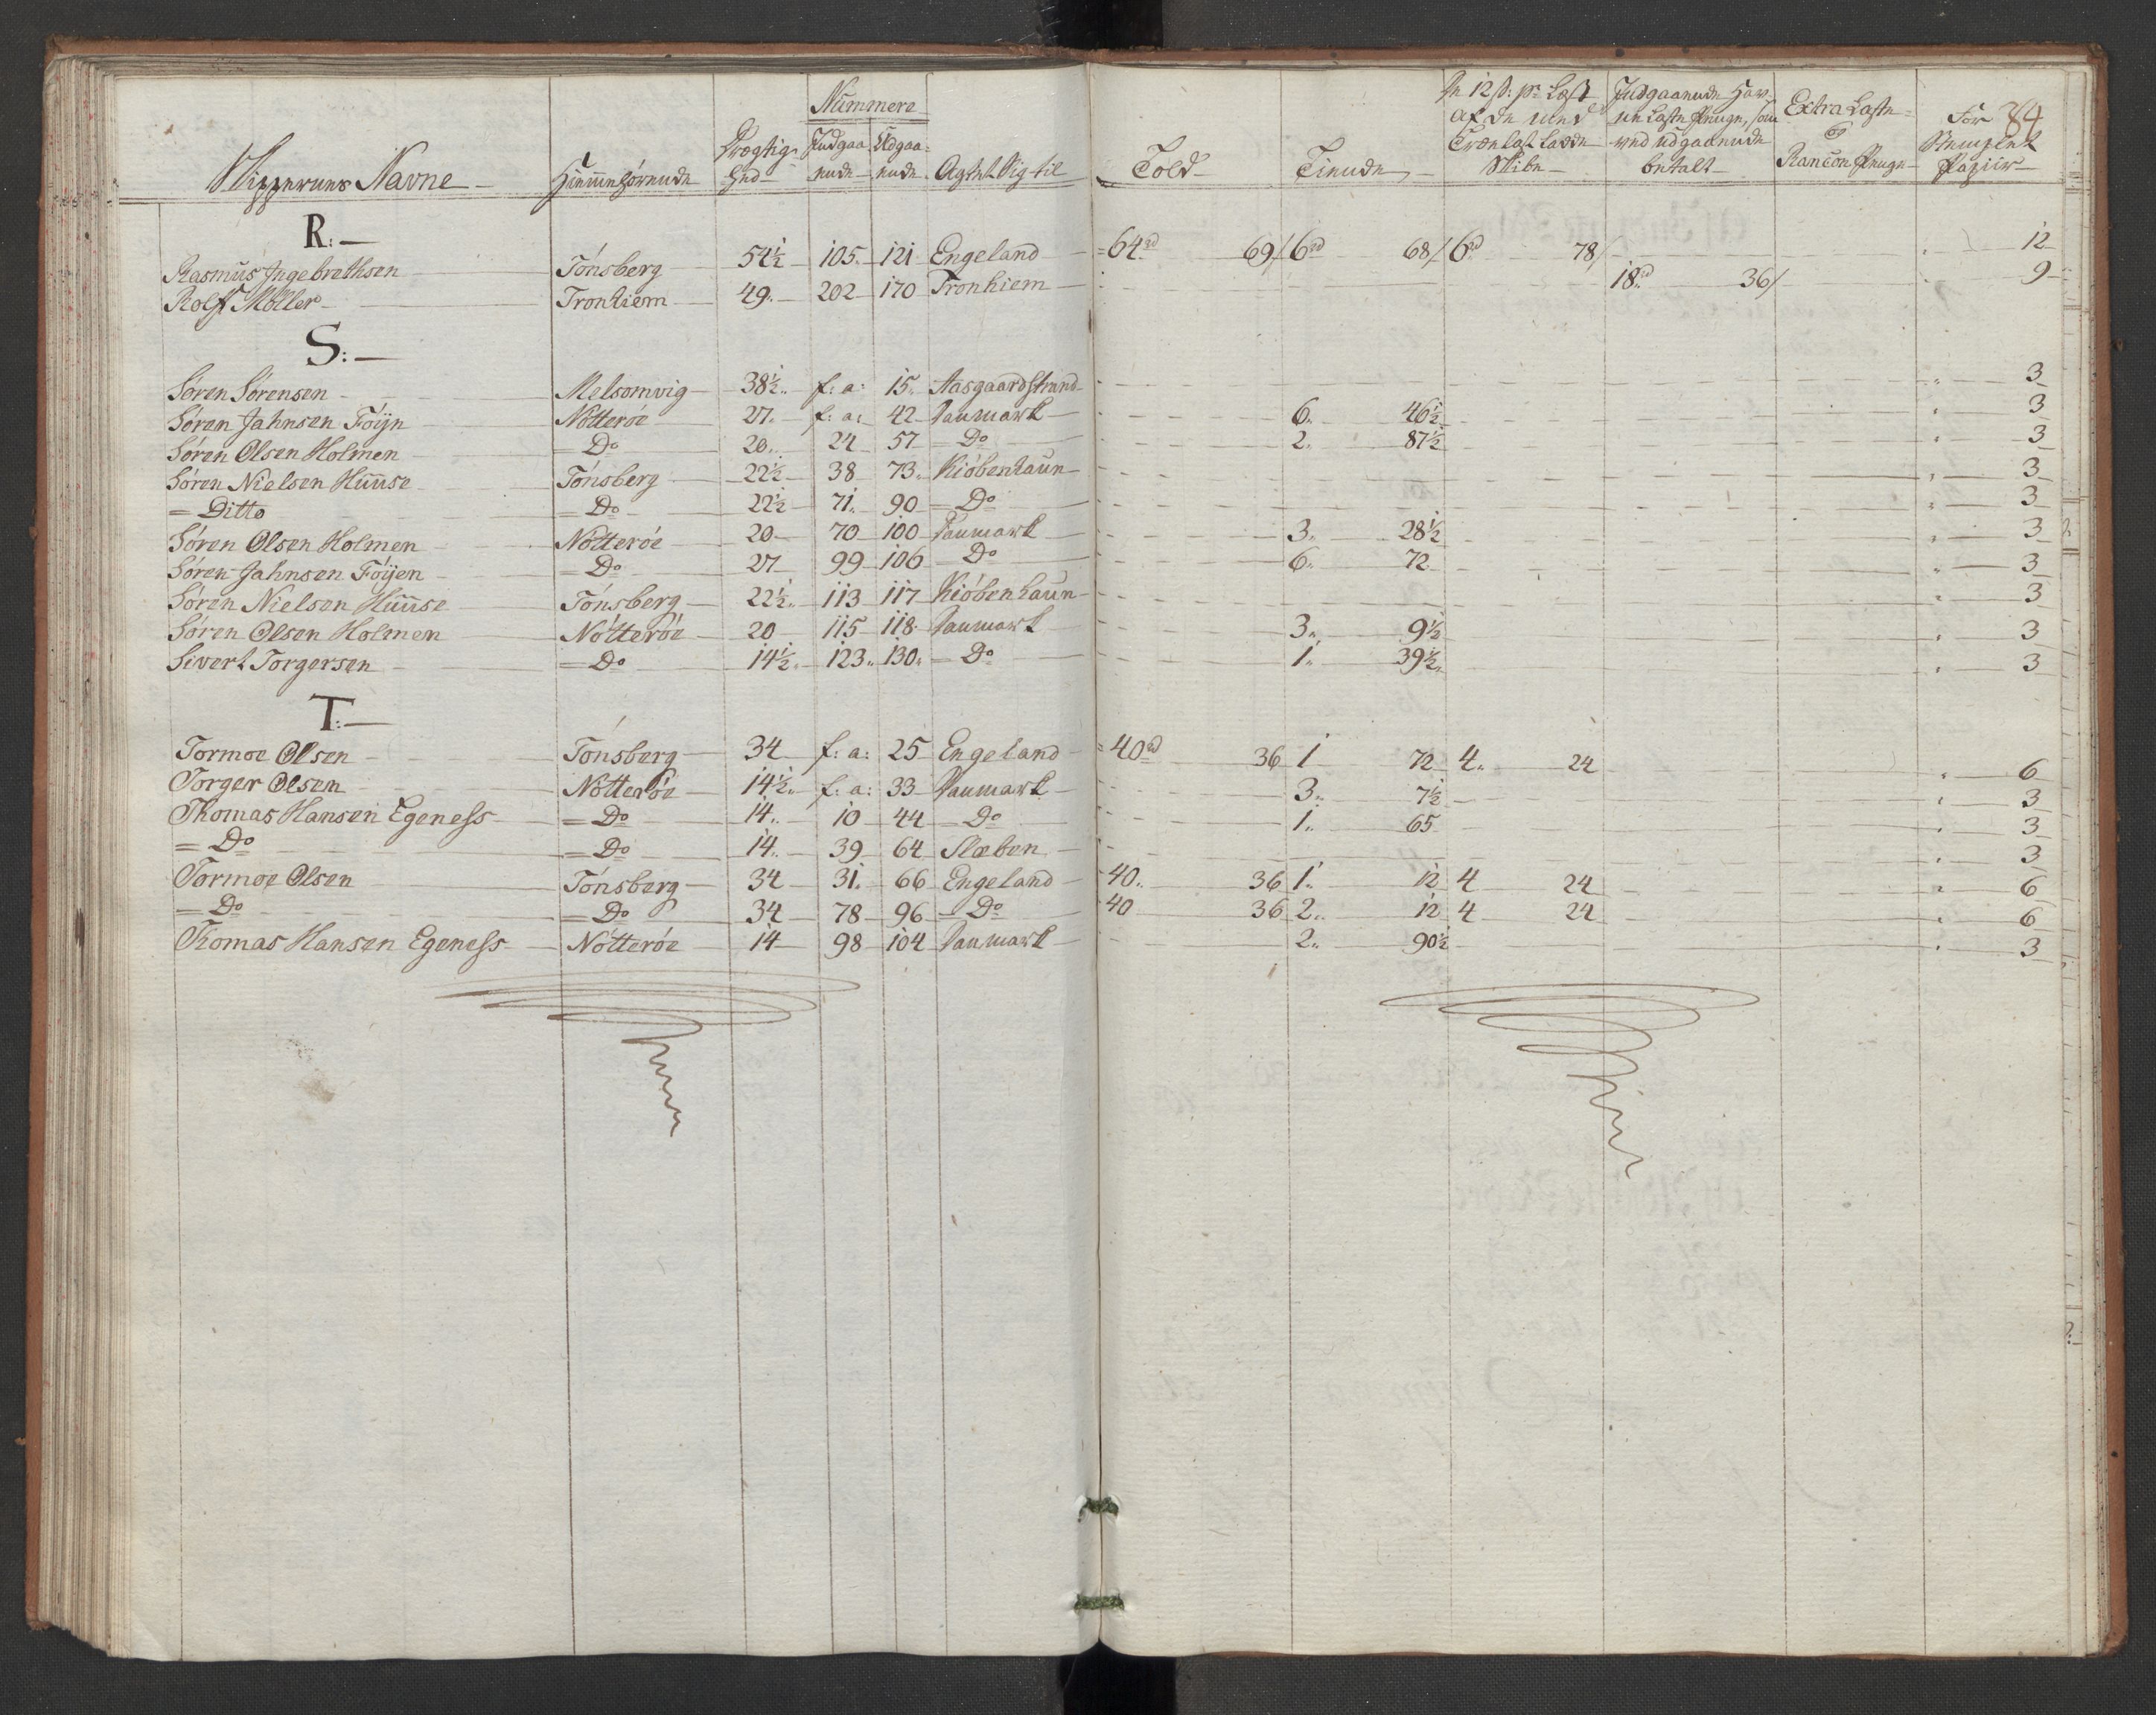 Skippernes Navne
Hiemmehörende
Drægtig-
hed
Nummere
Indgaa-
ende
Udgaa-
ende
Agtet Sig til
Told
Tiende
De 12 s: pr Læst
af de med
Trælast ladde
Skibe
Indgaaende Hav-
ne Laste Penge, som
ved udgaaende
betalt
Extra Laste
og
Rançon Penge
For
Stemplet
Papiir
84
R:
Rasmus Ingebrethsen Tönsberg 54½ 105 121 Engeland 64rd 69/ 6rd 68/ 6rd 78/ 12
Rolff Möller Tronhiem 49 202 170 Tronhiem 18rd 36/ 9
S:
Sören Sörensen Melsomvig 38½ f: a: 15 Aasgaardstrand 3
Sören Jahnsen Föijn Nötteröe 27 f: a: 42 Danmark 6 46½ 3
Sören Olsen Holmen Do 20 24 57 Do 2 87½ 3
Sören Nielsen Huuse Tönsberg 22½ 38 73 Kiöbenhaun 3
= Ditto = Do 22½ 71 90 = Do 3
Sören Olsen Holmen Nötteröe 20 70 100 Danmark 3 28½ 3
Sören Jahnsen Föijen = Do 27 99 106 = Do 6 72 3
Sören Nielsen Huuse Tönsberg 22½ 113 117 Kiöbenhaun 3
Sören Olsen Holmen Nötteröe 20 115 118 Danmark 3 9½ 3
Sivert Torgersen = Do 14½ 123 130 = Do 1 39½ 3
T:
Tormoe Olsen Tönsberg 34 f: a: 25 Engeland 40rd 36 1 72 4 24 6
Torger Olsen Nötteröe 14½ f: a: 33 Danmark 3 7½ 3
Thomas Hansen Egeness = Do 14 10 44 = Do 1 65 3
= Do = Do 14 39 64 Sleben 3
Tormoe Olsen Tönsberg 34 31 66 Engeland 40 36 1 12 4 24 6
= Do = Do 34 78 96 = Do 40 36 2 12 4 24 6
Thomas Hansen Egeness Nötteröe 14 98 104 Danmark 2 90½ 3